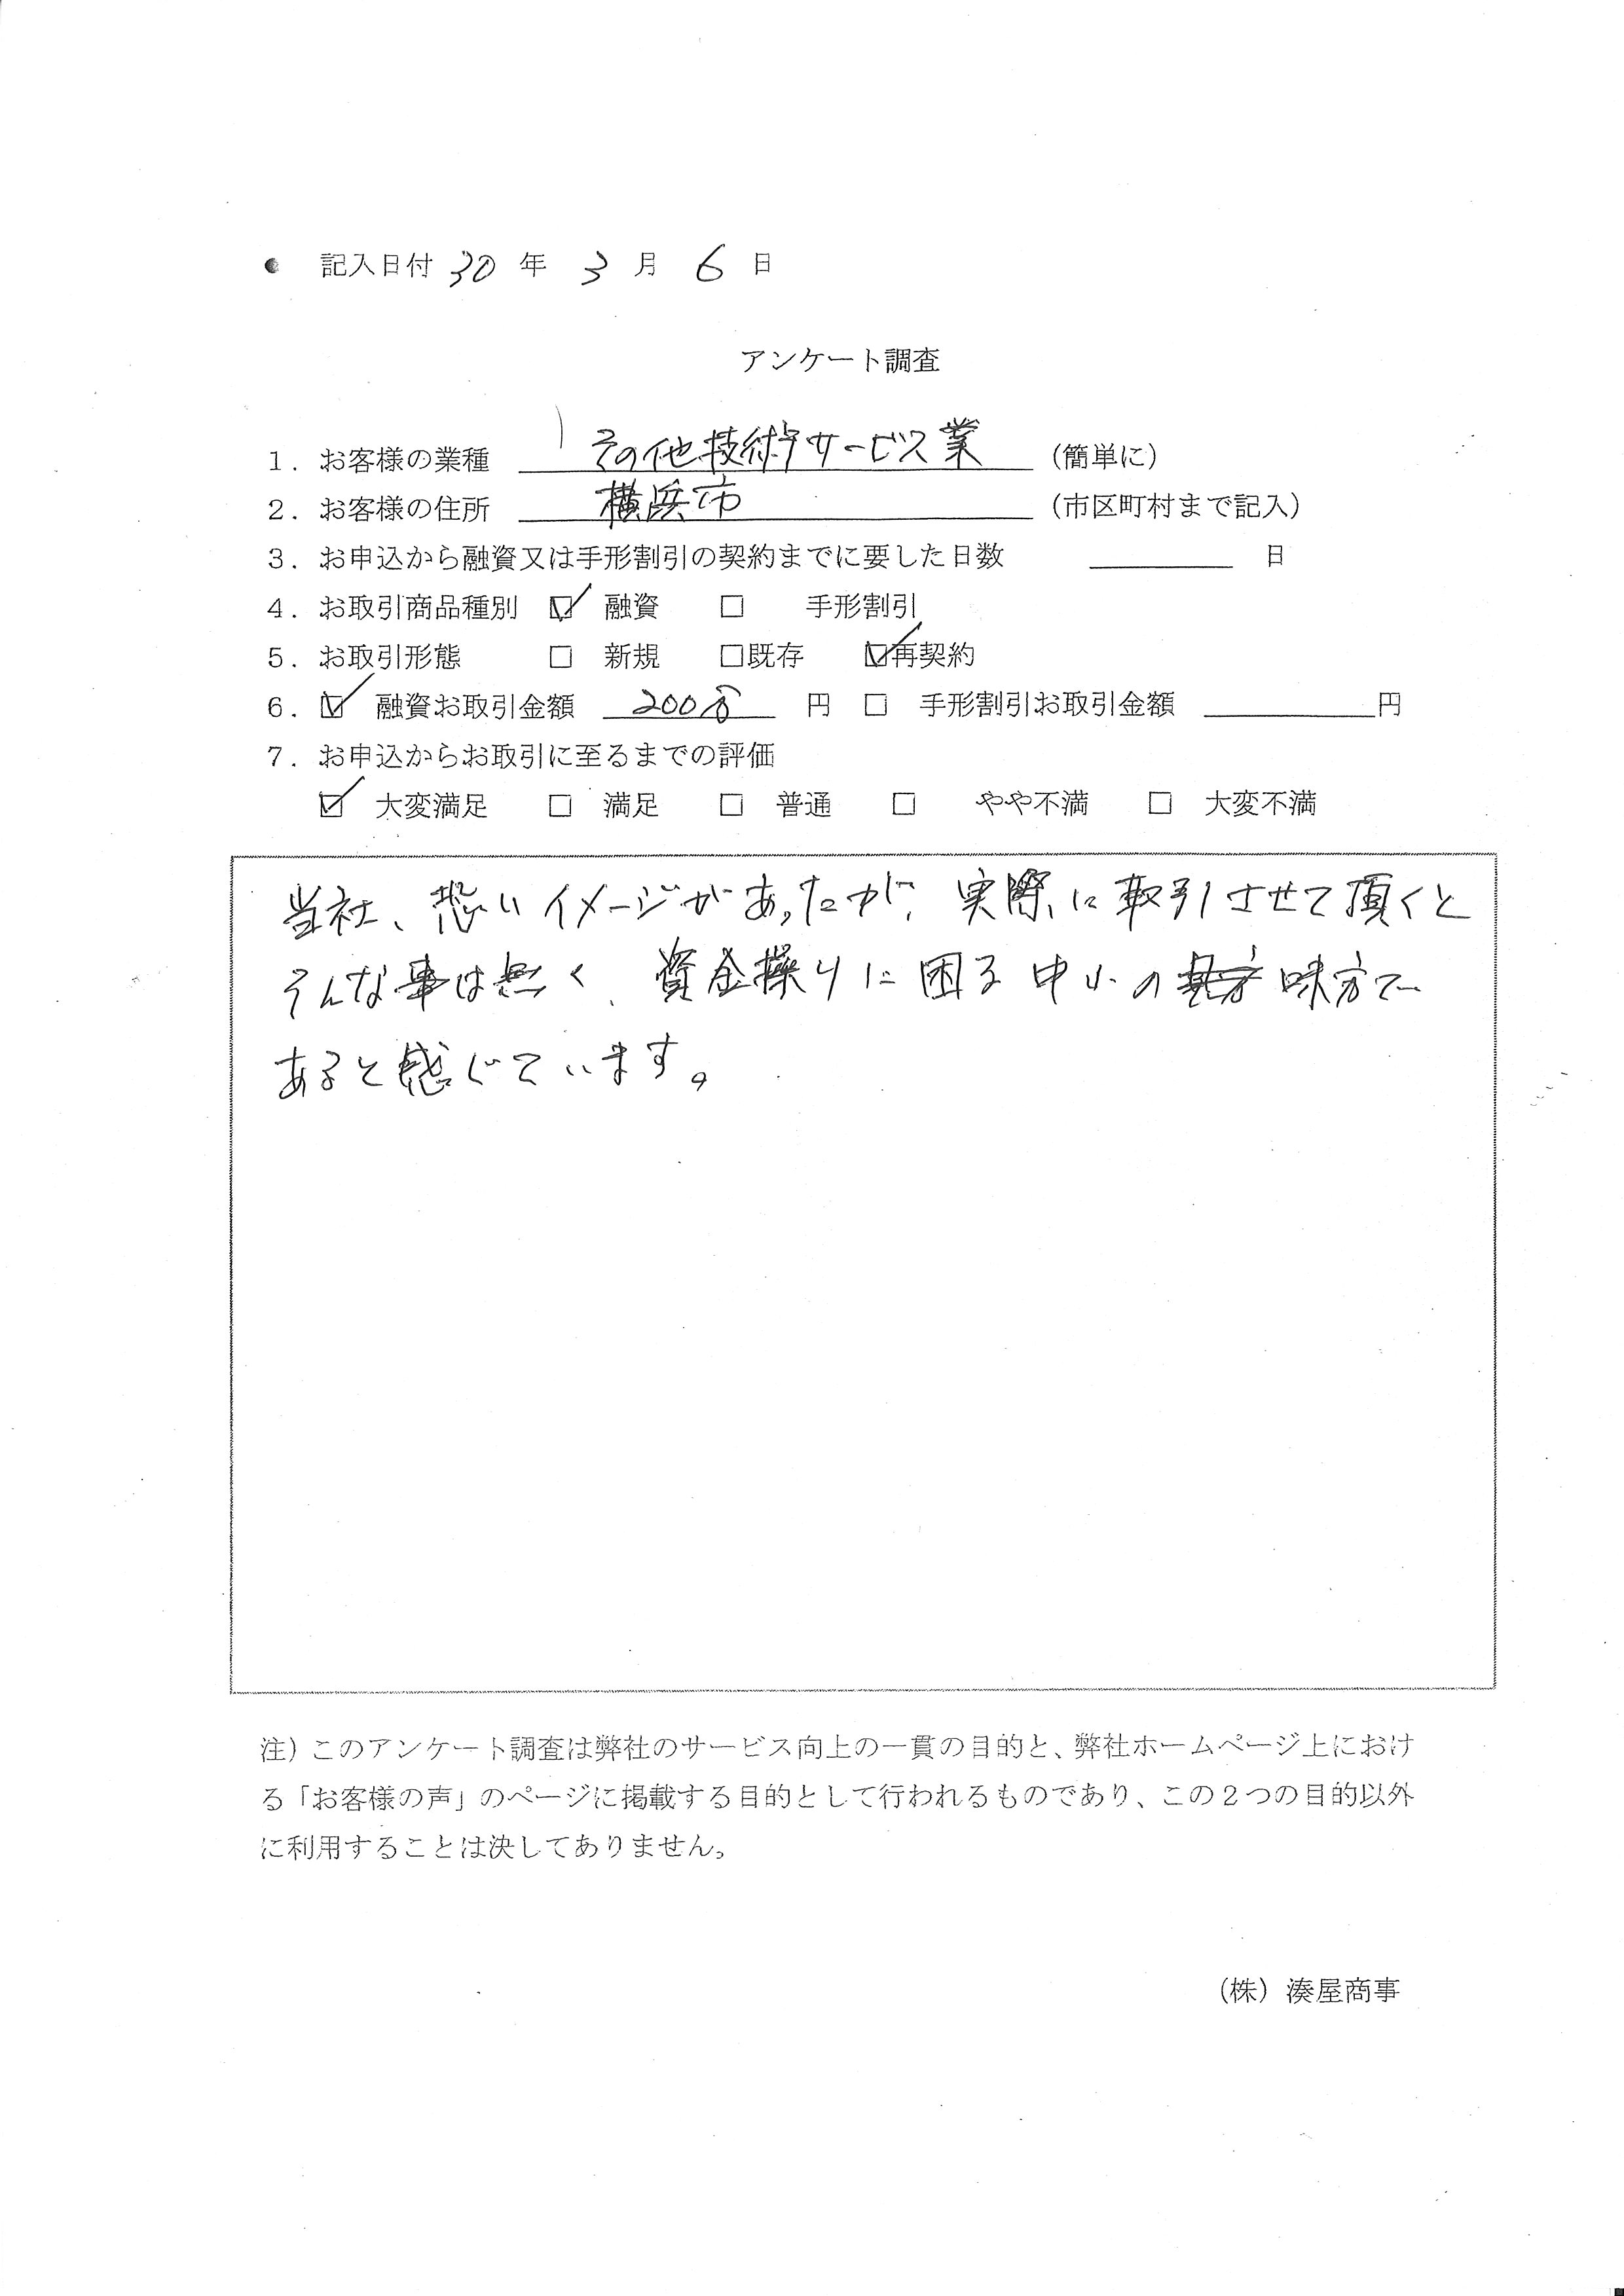 ● 記入日付 30 年 3 月 6 日
アンケート調査
1. お客様の業種 その他技術サービス業 (簡単に)
2. お客様の住所 横浜市 (市区町村まで記入)
3. お申込から融資又は手形割引の契約までに要した日数 ＿＿＿ 日
4. お取引商品種別 ☑ 融資 □ 手形割引
5. お取引形態 □ 新規 □既存 ☑再契約
6. ☑ 融資お取引金額 200万 円 □ 手形割引お取引金額 ＿＿＿円
7. お申込からお取引に至るまでの評価
☑ 大変満足 □ 満足 □ 普通 □ やや不満 □ 大変不満
当社、恐いイメージがあったが、実際に取引させて頂くと
そんな事は無く、資金繰りに困る中小の味方で
あると感じています。
注) このアンケート調査は弊社のサービス向上の一貫の目的と、弊社ホームページ上におけ
る「お客様の声」のページに掲載する目的として行われるものであり、この２つの目的以外
に利用することは決してありません。
(株) 湊屋商事